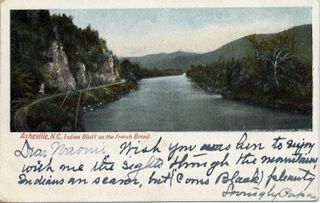 Asheville, N.C. Indian Bluff on the French Broad
Dear Naomi Wish you was hear to enjoy
with me the sights through the mountains
Indians are scarce, but (Coons Black) plenty
Lovingly Papa